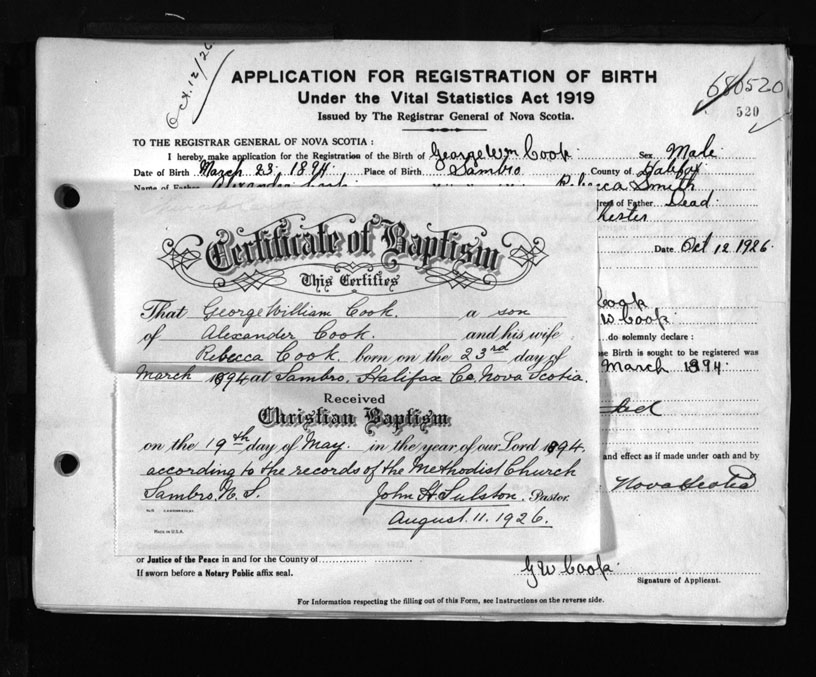 Oct. 12/26
680520
520
APPLICATION FOR REGISTRATION OF BIRTH
Under the Vital Statistics Act 1919
Issued by The Registrar General of Nova Scotia.
TO THE REGISTRAR GENERAL OF NOVA SCOTIA :
I hereby make application for the Registration of the Birth of George Wm Cook Sex Male
Date of Birth March 23. 1894. Place of Birth Sambro County of Halifax
Name of Father Alexander Cook Rebecca Smith
of Father Dead
Chester
Date Oct 12 1926.
Certificate of Baptism
This Certifies
That George William Cook. a son
of Alexander Cook. and his wife
Rebecca Cook. born on the 23rd day of
March 1894 at Sambro, Halifax Co. Nova Scotia.
Received
Christian Baptism
on the 19th day of May. in the year of our Lord 1894.
according to the records of the Methodist Church
Sambro, N. S. John H. Sulston. Pastor.
August. 11. 1926.
Made in U.S.A.
Cook
W Cook
do solemnly declare :
Birth is sought to be registered was
March 1894.
and effect as if made under oath and by
Nova Scotia
or Justice of the Peace in and for the County of
If sworn before a Notary Public affix seal.
G W Cook
Signature of Applicant.
For Information respecting the filling out of this Form, see Instructions on the reverse side.